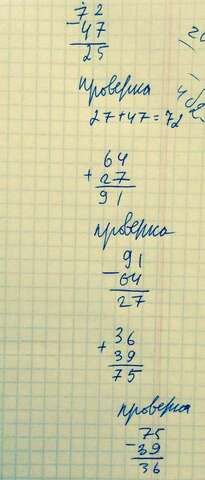 72
-47
25
проверка
27+47=72
64
+27
91
проверка
91
-64
27
36
+39
75
проверка
75
-39
36